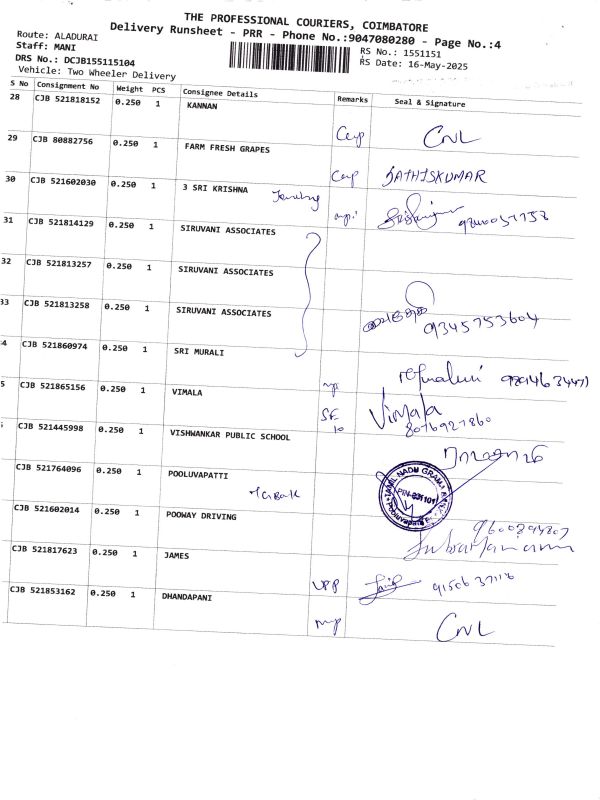 THE PROFESSIONAL COURIERS, COIMBATORE
Delivery Runsheet - PRR - Phone No.:9047080280 - Page No.:4
Route: ALADURAI
Staff: MANI
DRS No.: DCJB155115104
Vehicle: Two Wheeler Delivery
RS No.: 1551151
RS Date: 16-May-2025
S No Consignment No Weight PCS Consignee Details Remarks Seal & Signature
28 CJB 521818152 0.250 1 KANNAN CNL
29 CJB 80882756 0.250 1 FARM FRESH GRAPES SATHISKUMAR
30 CJB 521602030 0.250 1 3 SRI KRISHNA
31 CJB 521814129 0.250 1 SIRUVANI ASSOCIATES
32 CJB 521813257 0.250 1 SIRUVANI ASSOCIATES
33 CJB 521813258 0.250 1 SIRUVANI ASSOCIATES 9345753604
4 CJB 521860974 0.250 1 SRI MURALI
5 CJB 521865156 0.250 1 VIMALA Vimala
8076927860
CJB 521445998 0.250 1 VISHWANKAR PUBLIC SCHOOL
CJB 521764096 0.250 1 POOLUVAPATTI
TAMIL NADU GRAMA
CJB 521602014 0.250 1 POOWAY DRIVING
CJB 521817623 0.250 1 JAMES
CJB 521853162 0.250 1 DHANDAPANI CNL